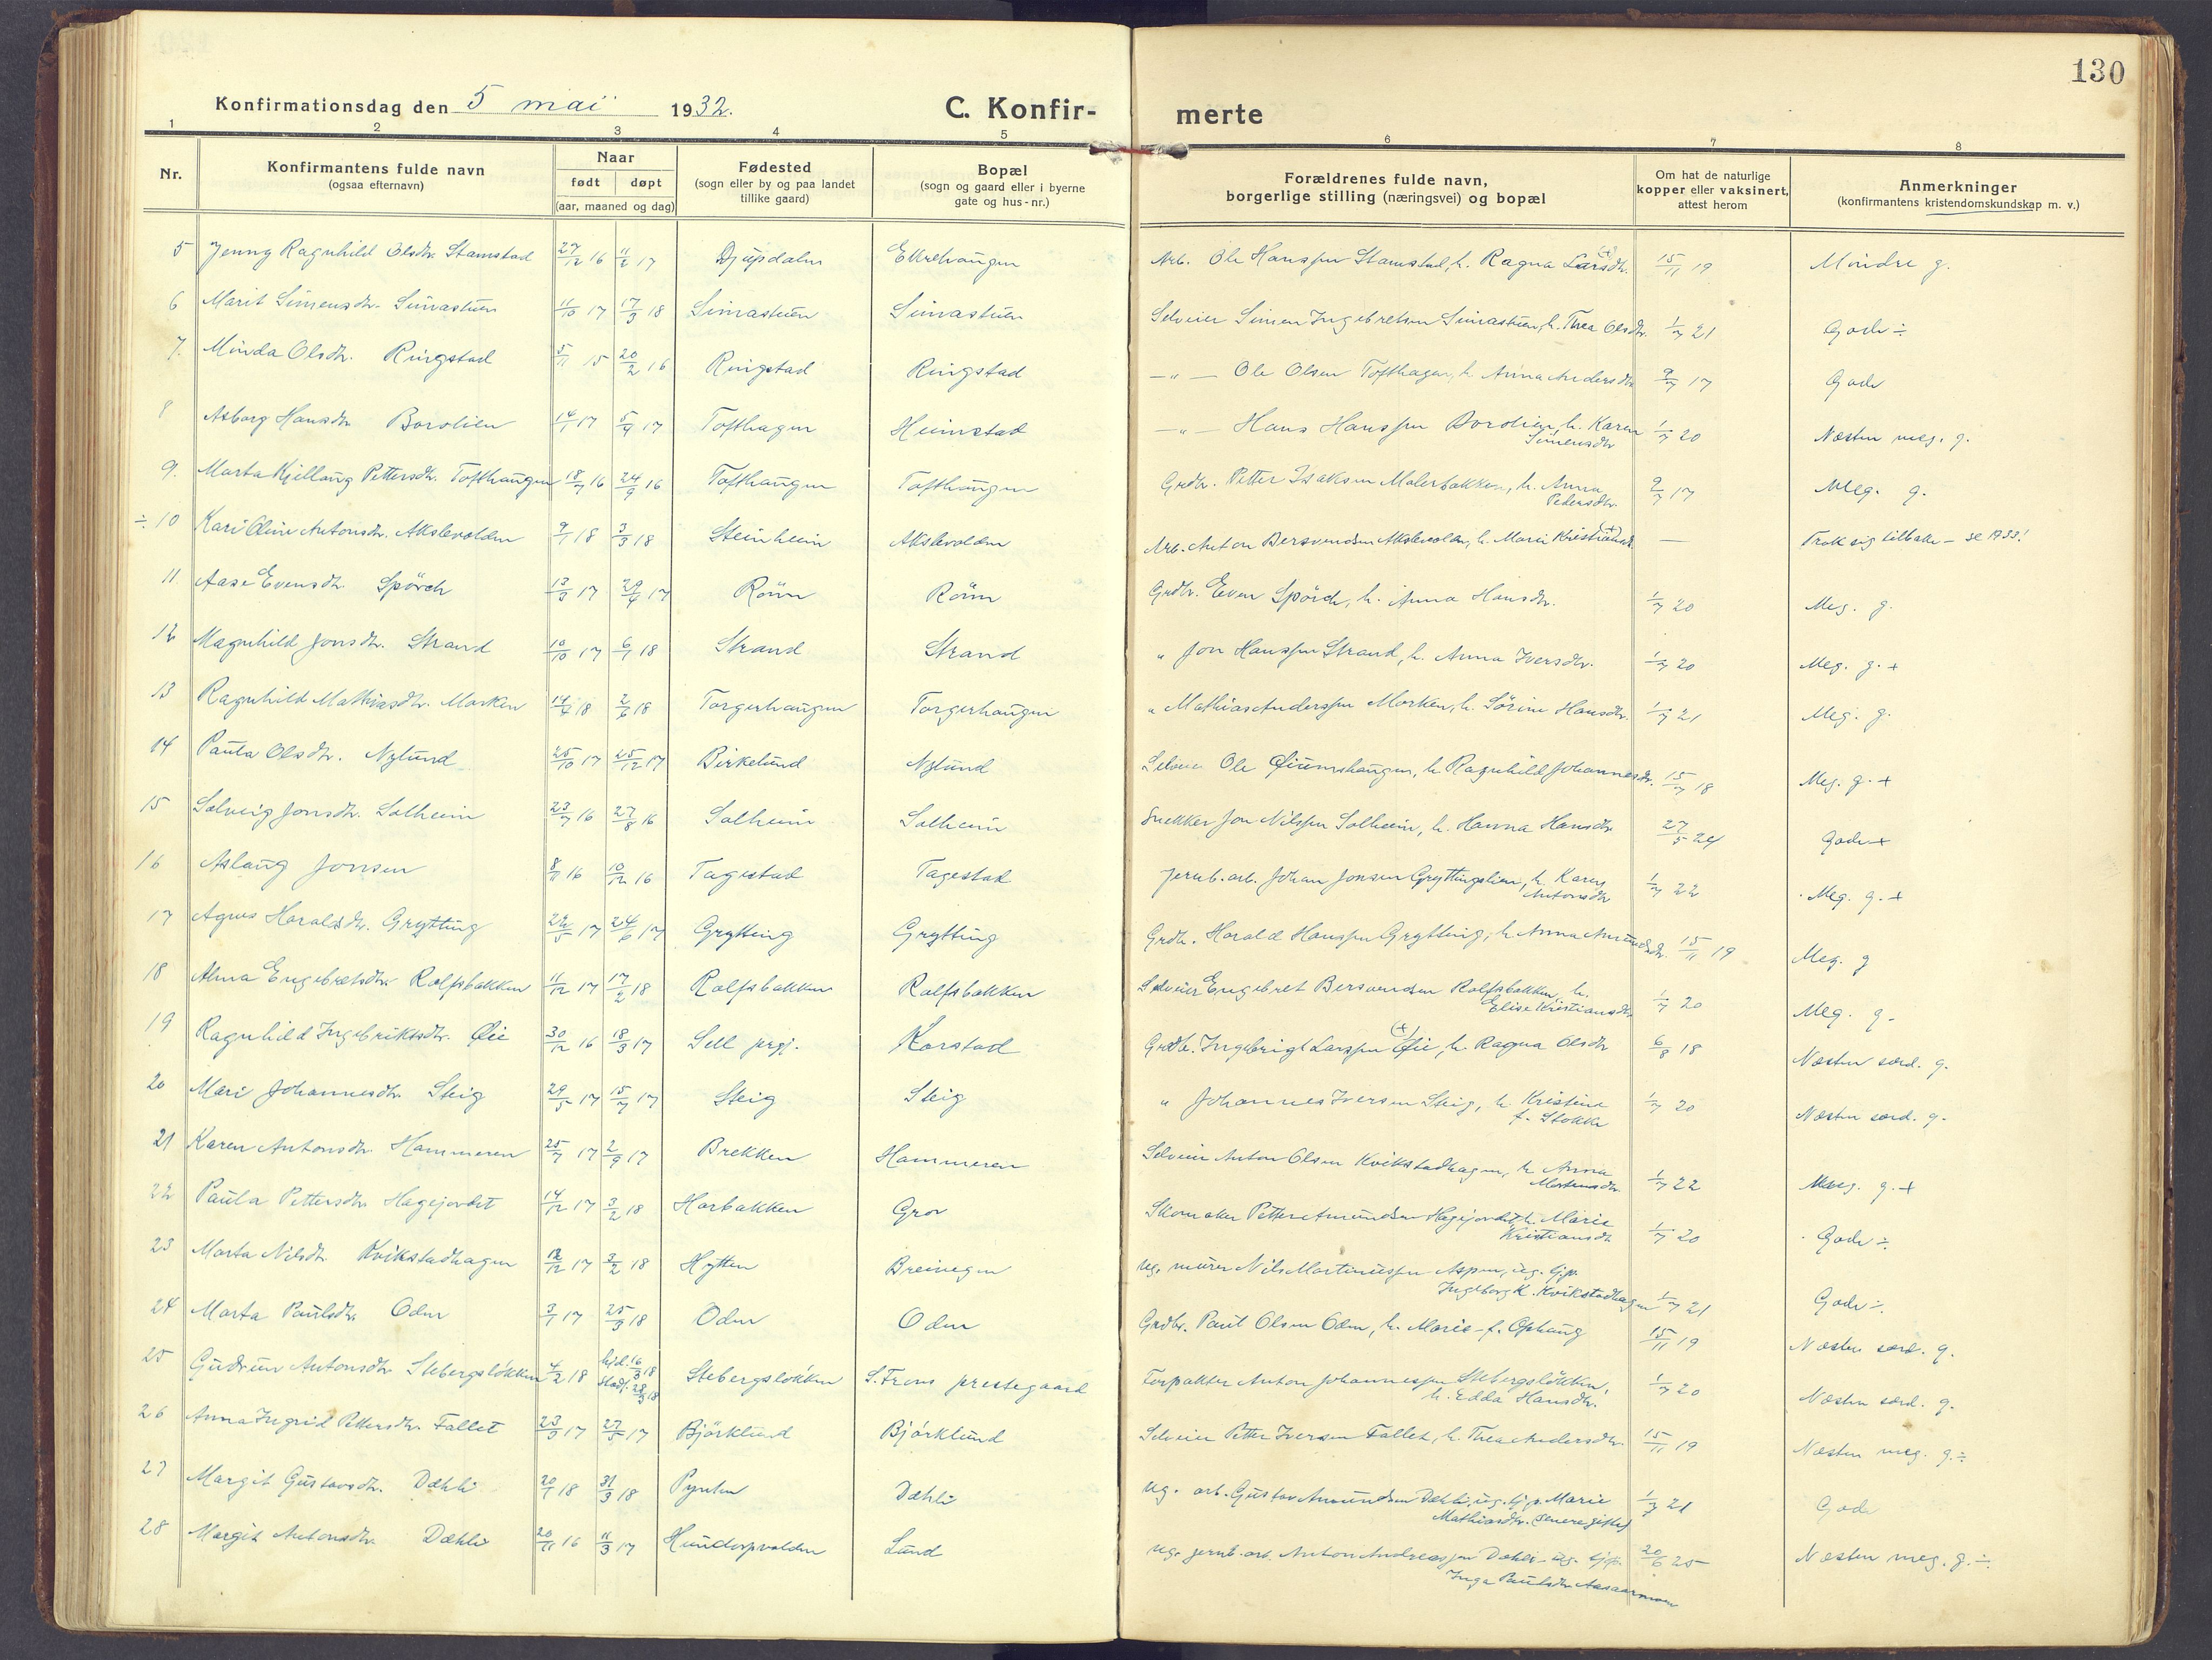 130
Konfirmationsdag den 5 mai 1932.
C. Konfir-
merte
1 2 3 4 5 6 7 8
Nr.
Konfirmantens fulde navn
(ogsaa efternavn)
Naar
født døpt
(aar, maaned og dag)
Fødested
(sogn eller by og paa landet
tillike gaard)
Bopæl
(sogn og gaard eller i byerne
gate og hus-nr.)
Forældrenes fulde navn,
borgerlige stilling (næringsvei) og bopæl
Om hat de naturlige
kopper eller vaksinert,
attest herom
Anmerkninger
(konfirmantens kristendomskundskap m. v.)
5 Jenny Ragnhild Olsdtr. Stamstad 27/12 16 11/2 17 Djupdalen Ekrehaugen Arb. Ole Hanssen Stamstad, h. Ragna Larsdtr. (+) 15/11 19 Mindre g.
6 Marit Simensdtr. Simastuen 11/10 17 17/3 18 Simastuen Simastuen Selveier Simen Ingebretsen Simastuen, h. Thea Olsdtr. 1/7 21 Godt ÷
7. Minda Olsdtr. Ringstad 5/11 15 20/2 16 Ringstad Ringstad —"— Ole Olsen Tofthagen, h. Anna Andersdtr. 9/7 17 Godt
8 Asborg Hansdtr. Borolien 14/1 17 5/4 17 Tofthagen Heimstad —"— Hans Hanssen Borolien, h. Karen
Simensdtr 1/7 20 Næsten meg. g.
9. Marta Kjellaug Pettersdtr. Tofthaugen 18/7 16 24/9 16 Tofthaugen Tofthaugen Grdbr. Petter Isaksen Malerbakken, h. Anna
Pedersdtr. 9/7 17 Meg. g.
÷ 10 Kari Oline Antonsdtr. Akslevolden 9/1 18 3/3 18 Steinheim Akslevolden Arb. Anton Bersvendsen Akslevolden, h. Marie Kristiansd. (+) — Trak sig tilbake — se 1933!
11 Aase Evensdtr. Spörck 13/3 17 29/4 17 Rönn Rönn Grdbr. Even Spörck, h. Anna Hansdtr. 1/7 20 Meg. g.
12 Magnhild Jonsdtr. Strand 10/10 17 6/1 18 Strand Strand " Jon Hanssen Strand, h. Anna Iversdtr. 1/7 20 Meg. g. +
13 Ragnhild Mathiasdtr. Morken 14/4 18 2/6 18 Torgerhaugen Torgerhaugen " Mathias Anderssen Morken, h. Sörine Hansdtr. 1/7 21 Meg. g.
14 Paula Olsdtr. Nylund 25/10 17 25/12 17 Birkelund Nylund Selveier Ole Öiumshaugen, h. Ragnhild Johannesdtr. 15/7 18 Meg. g. +
15 Solveig Jonsdtr. Solheim 23/7 16 27/8 16 Solheim Solheim Snekker Jon Nilssen Solheim, h. Hanna Hansdtr 27/5 24 Godt +
16 Aslaug Jonsen 8/11 16 10/12 16 Tagestad Tagestad Jernb. arb. Johan Jonsen Gryttingslien, h. Karen
Antonsdtr 1/7 22 Meg. g. +
17 Agnes Haraldsdtr. Grytting 22/5 17 24/6 17 Grytting Grytting Grdbr. Harald Hanssen Grytting, h. Anna Amundsdtr. 15/11 19 Meg. g
18 Alma Engebretsdtr. Rolfsbakken 11/12 17 17/2 18 Rolfsbakken Rolfsbakken Selveier Engebret Bersvendsen Rolfsbakken, h.
Elise Kristiansdtr 1/7 20 Meg. g.
19 Ragnhild Ingebriktsdtr. Öie 30/12 16 18/3 17 Sell prgj. Korstad Grdbr. Ingebrigt Larssen Öie (+), h. Ragna Olsdtr 6/8 18 Næsten særd. g.
20 Mari Johannesdtr. Steig 29/5 17 15/7 17 Steig Steig " Johannes Iversen Steig, h. Kristine
f. Stokke 1/7 20 Næsten særd. g.
21 Karen Antonsdtr. Hammeren 25/7 17 2/9 17 Brekken Hammeren Selveier Anton Olsen Kvikstadhagen, h. Anna
Mortensdtr. 1/7 22 Meg. g. +
22 Paula Pettersdtr. Hagejordet 14/12 17 3/2 18 Horbakken Grov Skomaker Petter Amundsen Hagejordet, h. Marie
Kristiansdtr 1/7 20 Godt ÷
23 Marta Nilsdtr. Kvikstadhagen 12/12 17 3/2 18 Hytten Breivegen Ug. murer Nils Martinussen Aspen, ug. tjp.
Ingeborg K. Kvikstadhagen 1/7 21 Godt ÷
24 Marta Paulsdtr. Oden 3/1 17 25/3 18 Oden Oden Grdbr. Paul Olsen Oden, h. Marie f. Ophaug 15/11 19 Næsten særd. g.
25 Gudrun Antonsdtr. Stebergslökken 4/2 18 hjd. 16/3 18
stadf. 28/3 18 Stebergslökken S. Frons prestegaard Forpakter Anton Johannessen Stebergslökken,
h. Edda Hansdtr. 1/7 20 Næsten særd. g.
26 Anna Ingrid Pettersdtr. Fallet 23/3 17 27/5 17 Björklund Björklund Selveier Petter Iversen Fallet, h. Thea Andersdtr. 15/11 19 Næsten meg. g. ÷
27 Margit Gustavsdtr. Dæhli 20/1 18 31/3 18 Pynten Dæhli Ug. arb. Gustav Amundsen Dæhli, ug. tjp. Marie
Mathiasdtr. (senere gifte) 1/7 21 Godt
28 Margit Antonsdtr. Dæhli 20/11 16 11/3 17 Hundorpvolden Lund Ug. jernb. arb. Anton Andreassen Dæhli, ug. tjp.
Inga Paulsdtr. Aasaarmoen 20/6 25 Næsten meg. g. ÷